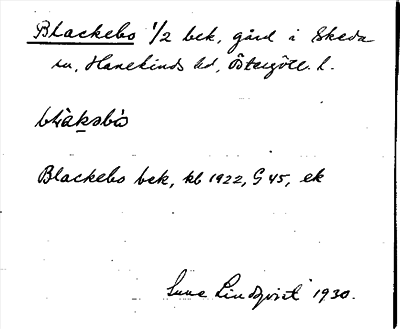 Blackebo 1/2 bek, gård i Skeda
sn, Hanekinds hd, Östergötl. l.
Blackebo bek, kb 1922, G 45, ek
Sune Lindqvist 1930.